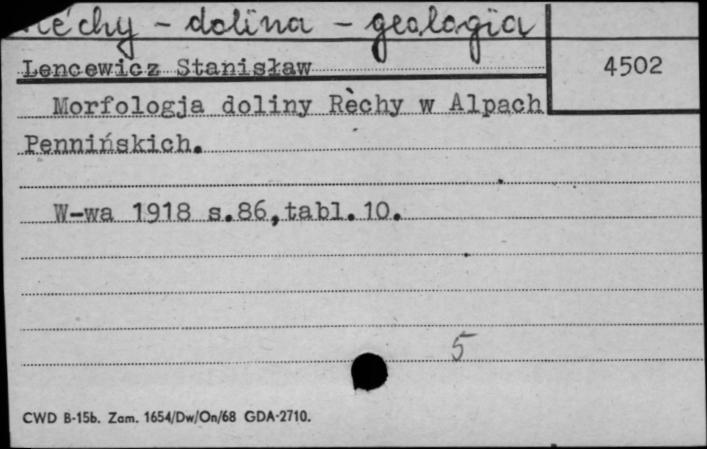 Réchy - dolina - geologia
Lencewicz Stanisław
4502
Morfologja doliny Rèchy w Alpach
Pennińskich.
W-wa 1918 s.86,tabl.10.
5
CWD B-15b. Zam. 1654/Dw/On/68 GDA-2710.